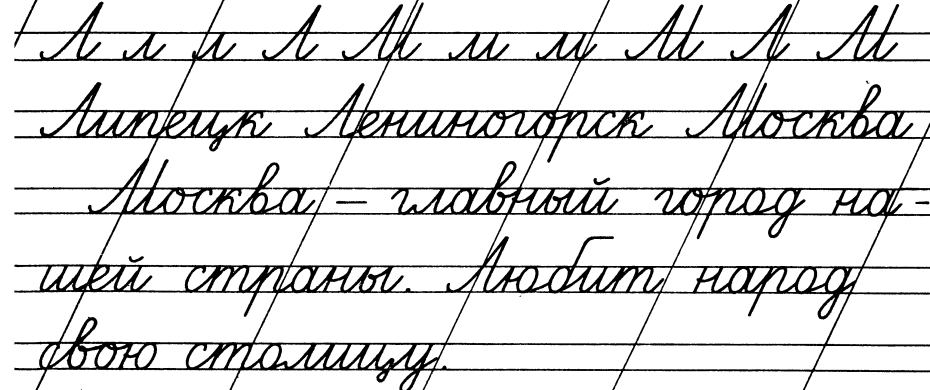 Л л л Л М м м М Л М
Липецк Лениногорск Москва
Москва – главный город на-
шей страны. Любит народ
свою столицу.